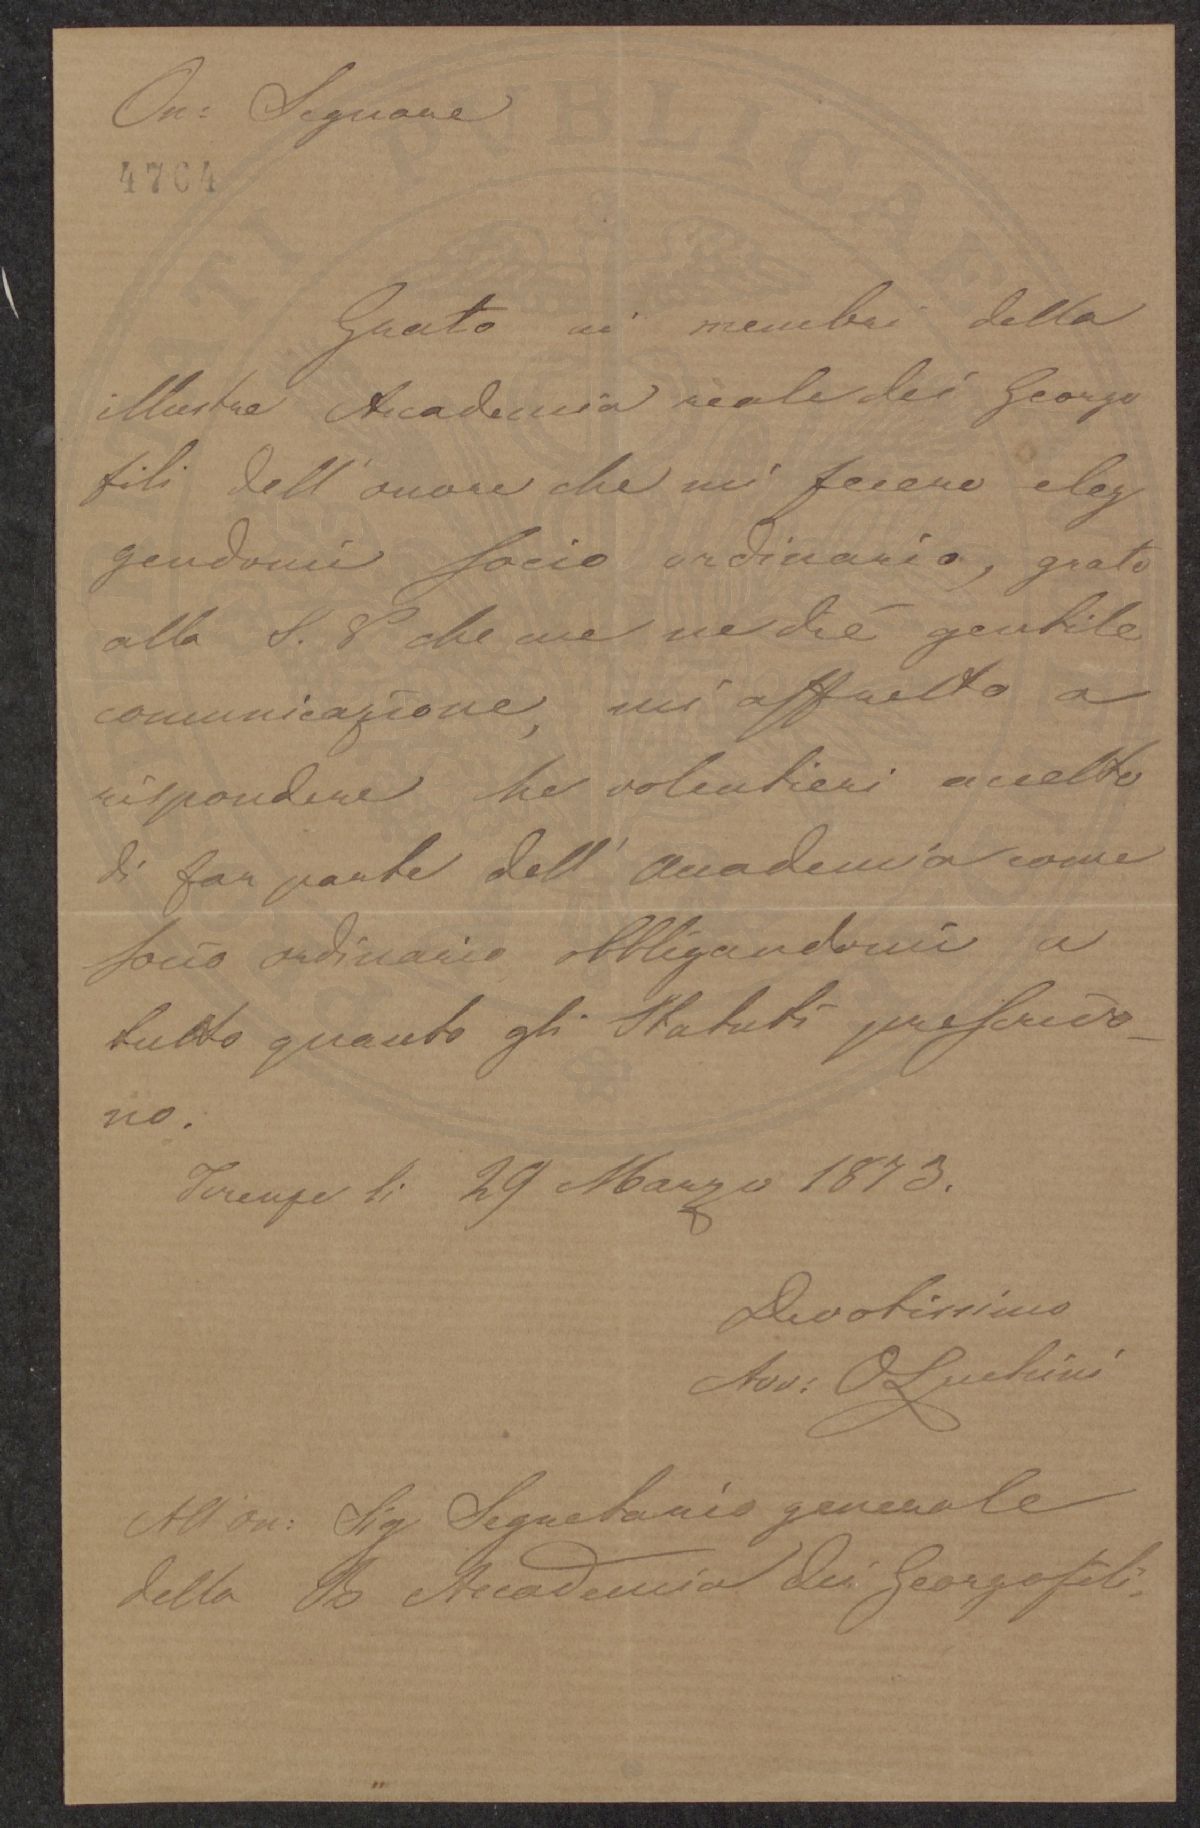 On: Signore
4764
Grato ai membri della
illustre Accademia reale dei Georgo
fili dell'onore che mi fecero eleg
gendomi socio ordinario, grato
alla S. V che me ne diè gentile
comunicazione, mi affretto a
rispondere che volentieri accetto
di far parte dell'Accademia come
socio ordinario obbligandomi a
tutto quanto gli Statuti prescrivo-
no.
Firenze li 29 Marzo 1873.
Devotissimo
Avv: O Luchini
All on: Sig Segretario generale
della R Accademia dei Georgofili.
PVBLICAE